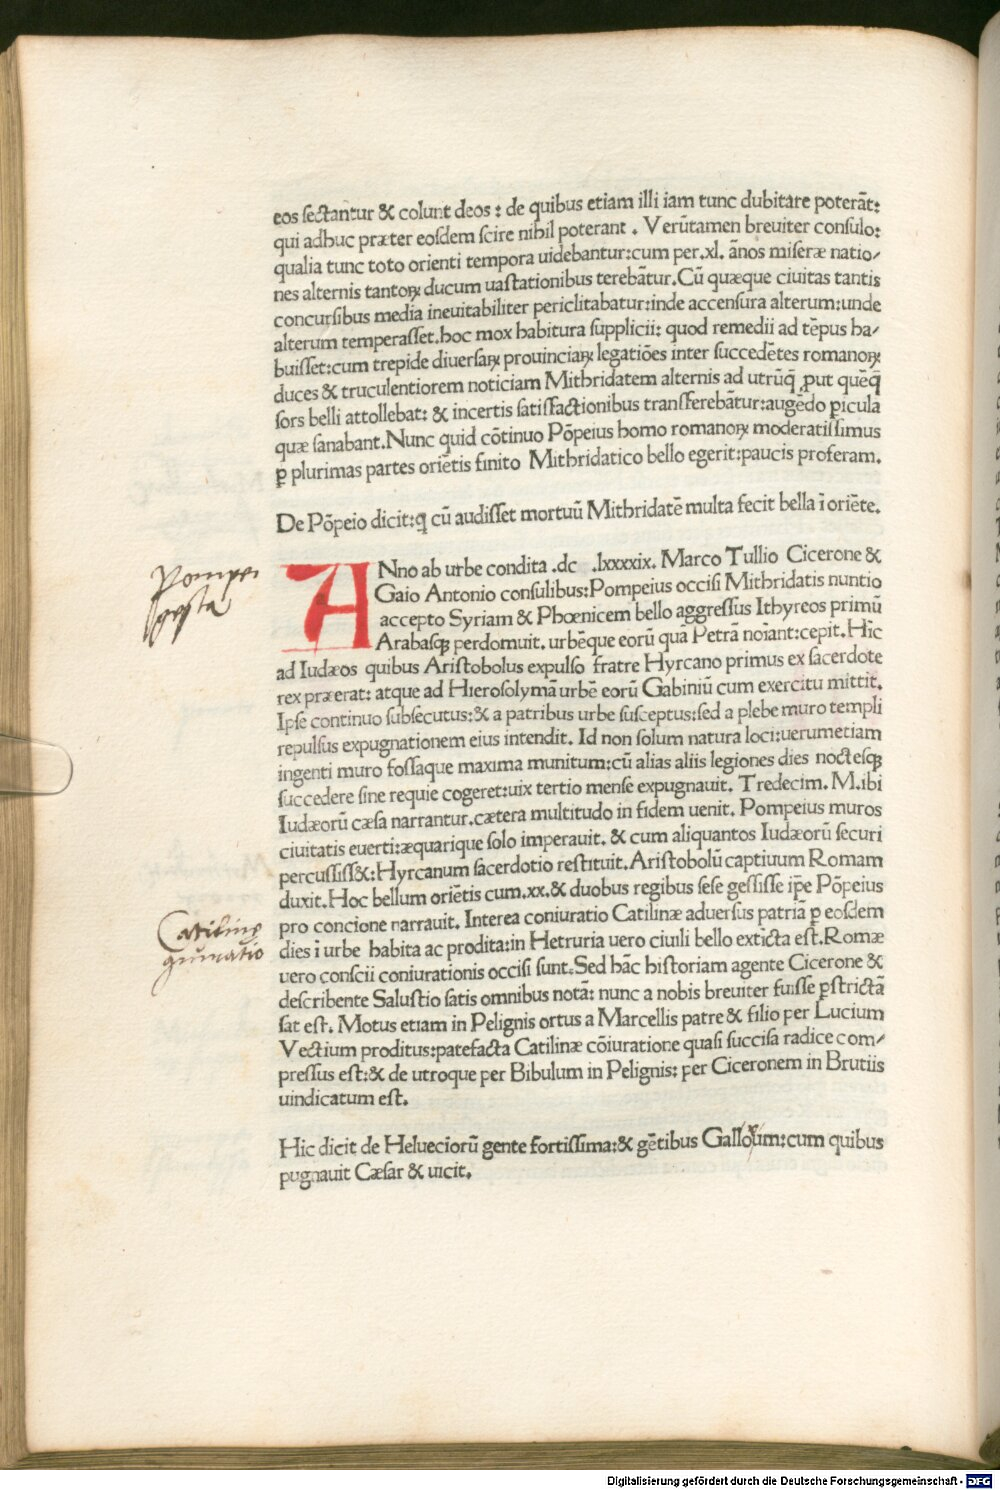 eos sectantur & colunt deos : de quibus etiam illi iam tunc dubitare poterāt:
qui adhuc præter eosdem scire nihil poterant . Verūtamen breuiter consulo:
qualia tunc toto orienti tempora uidebantur:cum per.xl. ānos miseræ natio/
nes alternis tantoꝝ ducum uastationibus terebātur.Cū quæque ciuitas tantis
concursibus media ineuitabiliter periclitabatur:inde accensura alterum:unde
alterum temperasset.hoc mox habitura supplicii: quod remedii ad tēpus ha/
buisset:cum trepide diuersaꝝ prouinciaꝝ legatiōes inter succedētes romanoꝝ
duces & truculentiorem noticiam Mithridatem alternis ad utrūq̄ ꝓut quēq̄
sors belli attollebat: & incertis satisfactionibus transferebātur:augēdo ꝑicula
quæ sanabant.Nunc quid cōtinuo Pōpeius homo romanoꝝ moderatissimus
ꝑ plurimas partes oriētis finito Mithridatico bello egerit:paucis proferam.
De Pōpeio dicit:ꝙ cū audisset mortuū Mithridatē multa fecit bella ī oriēte.
Pompei
gesta
ANno ab urbe condita .dc .lxxxxix. Marco Tullio Cicerone &
Gaio Antonio consulibus:Pompeius occisi Mithridatis nuntio
accepto Syriam & Phœnicem bello aggressus Ithyreos primū
Arabasqꝫ perdomuit. urbēque eorū quā Petrā noīant:cepit. Hīc
ad Iudæos quibus Aristobolus expulso fratre Hyrcano primus ex sacerdote
rex præerat: atque ad Hierosolymā urbē eorū Gabiniū cum exercitu mittit.
Ipse continuo subsecutus:& a patribus urbe susceptus:sed a plebe muro templi
repulsus expugnationem eius intendit. Id non solum natura loci:uerumetiam
ingenti muro fossaque maxima munitum:cū alias aliis legiones dies noctesqꝫ
succedere sine requie cogeret:uix tertio mense expugnauit. Tredecim. M.ibi
Iudæorū cæsa narrantur.cætera multitudo in fidem uenit. Pompeius muros
ciuitatis euerti:æquarique solo imperauit. & cum aliquantos Iudæorū securi
percussiss&:Hyrcanum sacerdotio restituit.Aristobolū captiuum Romam
duxit.Hoc bellum oriētis cum.xx.& duobus regibus sese gessisse ip̄e Pōpeius
pro concione narrauit. Interea coniuratio Catilinæ aduersus patriā ꝑ eosdem
Catiline
dies ī urbe habita ac prodita:in Hetruria uero ciuili bello extīcta est.Romæ
uero conscii coniurationis occisi sunt.Sed hāc historiam agente Cicerone &
describente Salustio satis omnibus notā: nunc a nobis breuiter fuisse ꝑstrictā
sat est. Motus etiam in Pelignis ortus a Marcellis patre & filio per Lucium
Vectium proditus:patefacta Catilinæ cōiuratione quasi succisa radice com/
pressus est:& de utroque per Bibulum in Pelignis: per Ciceronem in Brutiis
uindicatum est.
Hic dicit de Helueciorū gente fortissima:& gētibus Galloꝝum:cum quibus
pugnauit Cæsar & uicit.
Digitalisierung gefördert durch die Deutsche Forschungsgemeinschaft - DFG